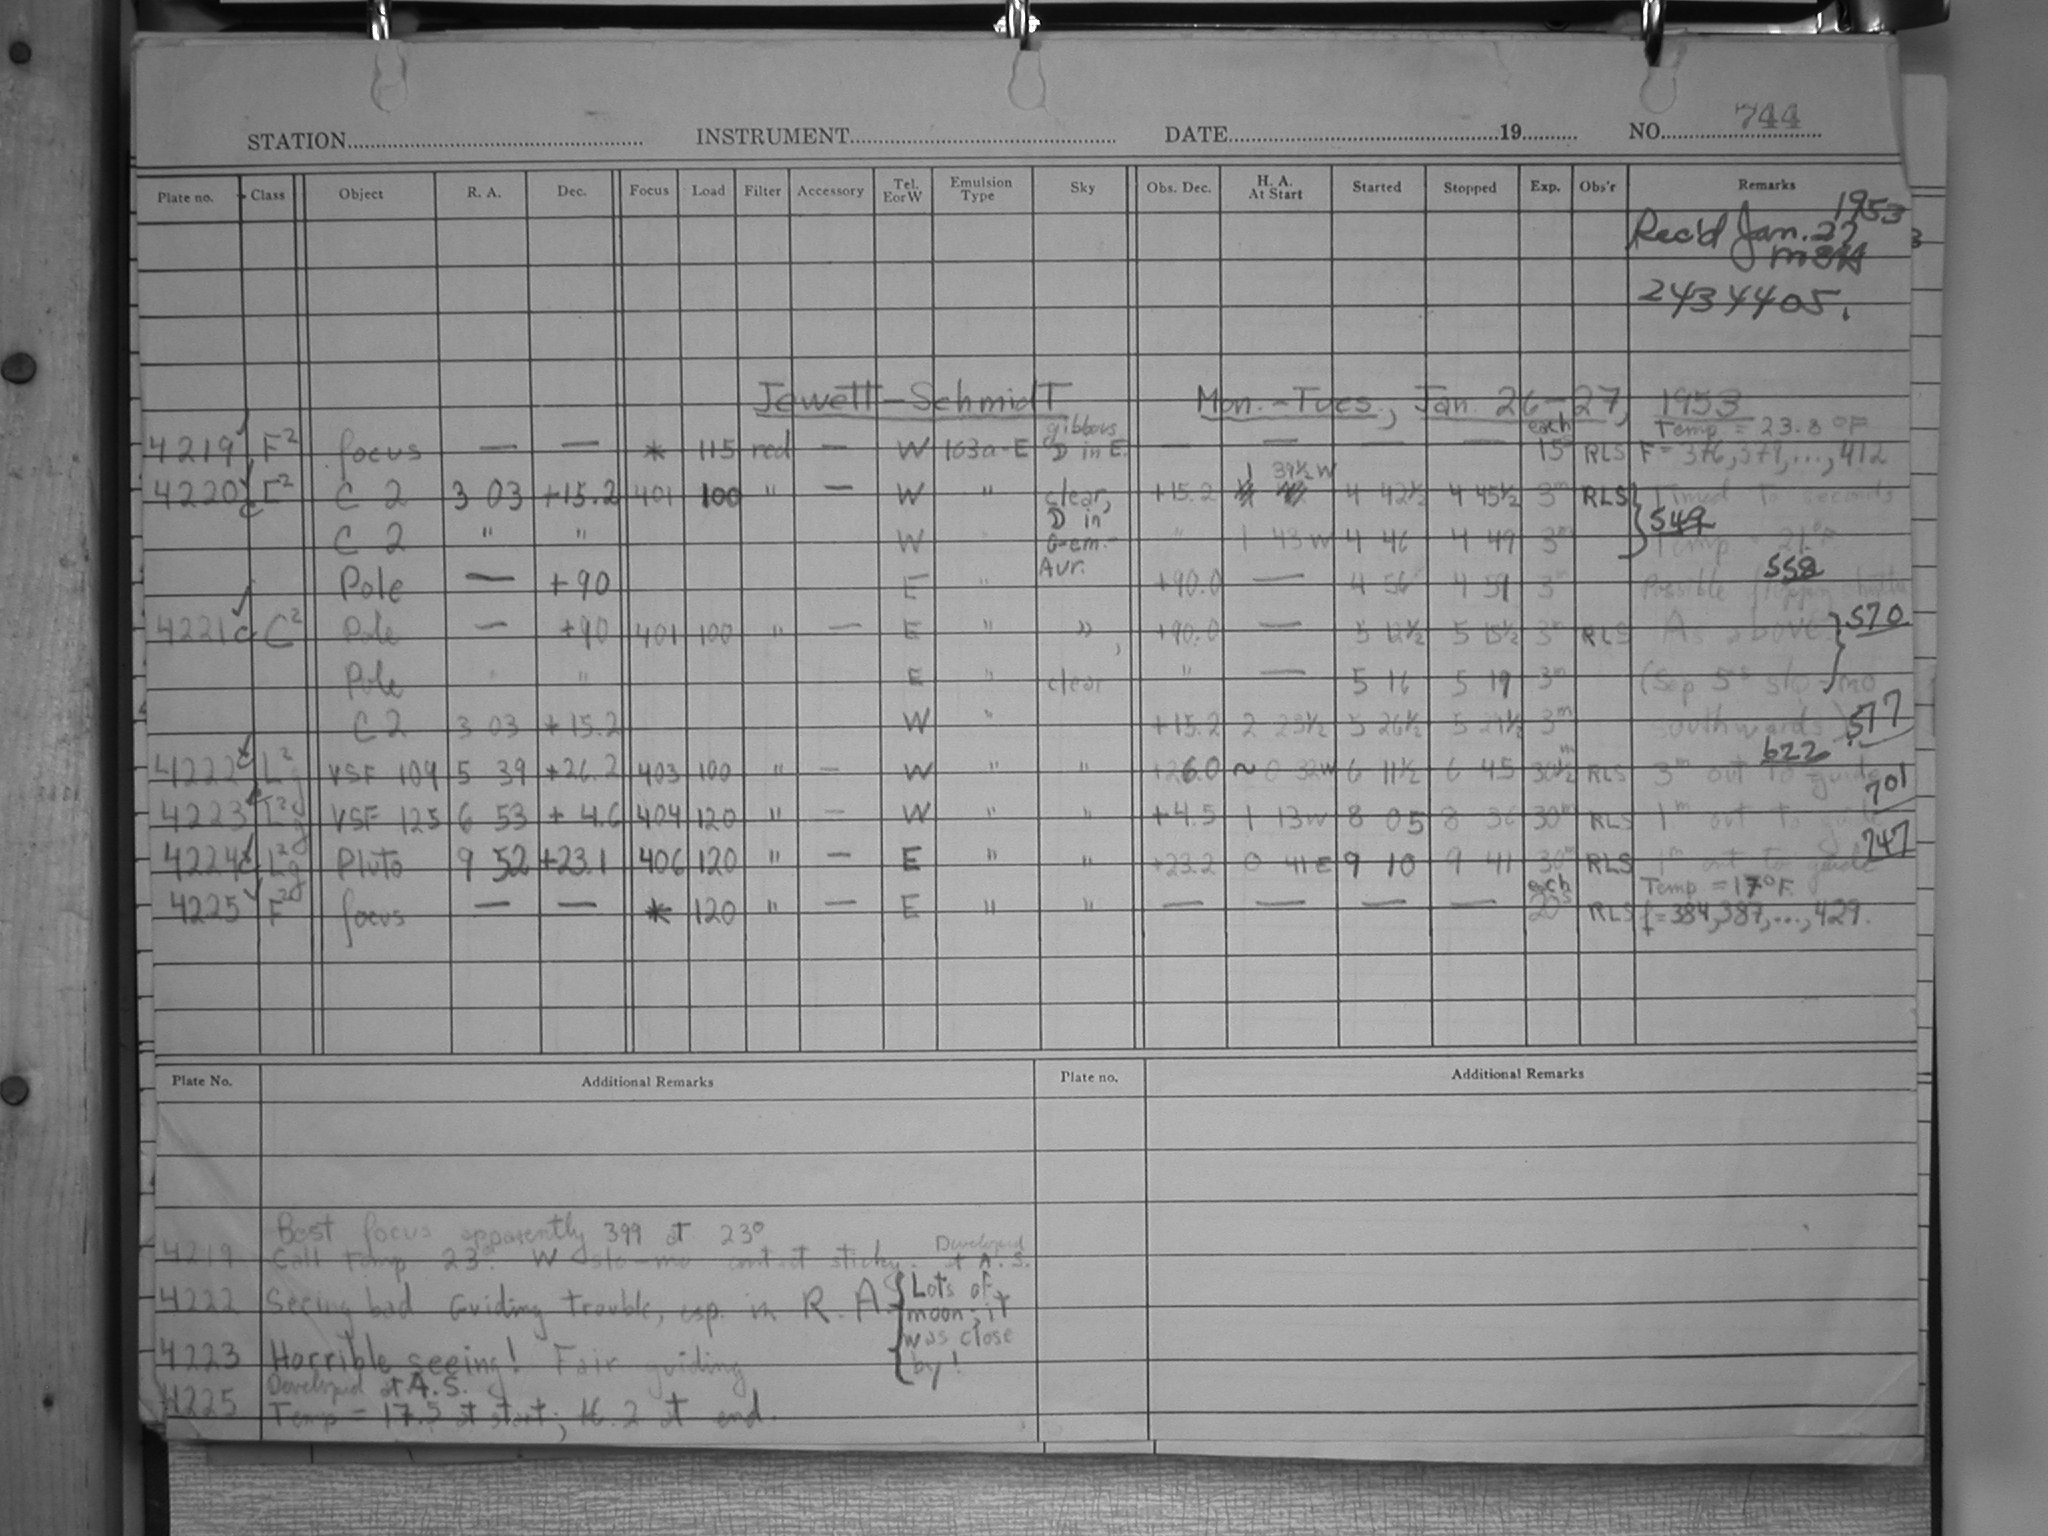 STATION INSTRUMENT DATE 19 NO. 744
Plate no. Class Object R. A. Dec. Focus Load Filter Accessory Tel. E or W Emulsion Type Sky Obs. Dec. H. A. At Start Started Stopped Exp. Obs'r Remarks
1953
Rec'd Jan. 27
2434405.
Jewett-Schmidt Mon.-Tues., Jan. 26-27, 1953
gibbous each Temp = 23.8 °F
4219 F² focus — — * 115 red — W 103a-E D in E. — — — — 15s RLS F = 376, 379, ..., 412
4220 F² C 2 3 03 +15.2 401 100 " — W " clear, +15.2 1 39½ W 4 42½ 4 45½ 3m RLS Timed to seconds
D in 549
C 2 " " W " Gem.- " 1 43 W 4 46 4 49 3m Temp 21°F
Aur. 558
Pole — +90 E " +90.0 — 4 56 4 59 3m Possible shutter
4221 C² Pole — +90 401 100 " — E " " +90.0 — 5 12½ 5 15½ 3m RLS As above 570
Pole " " E " clear " — 5 16 5 19 3m (Sep 5s slo-mo
C 2 3 03 +15.2 W " +15.2 2 23½ 5 26½ 5 29½ 3m southwards) 577
622
4222 L²g VSF 109 5 39 +26.2 403 100 " — W " " +26.0 ~0 32W 6 11½ 6 45 30½m RLS 3m out to guide
701
4223 L²g VSF 125 6 53 +4.6 404 120 " — W " " +4.5 1 13W 8 05 8 36 30m RLS 1m out to guide
747
4224 L²g Pluto 9 52 +23.1 406 120 " — E " " +23.2 0 41E 9 10 9 41 30m RLS 1m out to guide
each Temp = 17°F
4225 F² focus — — * 120 " — E " " — — — — 20s RLS f = 384, 387, ..., 429.
Plate No. Additional Remarks Plate no. Additional Remarks
Best focus apparently 399 at 23°
4219 Call temp 23°. W slo-mo contact sticky. Developed at A.S.
4222 Seeing bad Guiding trouble, esp. in R.A. { Lots of
moon; it
was close
4223 Horrible seeing! Fair guiding by!
Developed at A.S.
4225 Temp = 17.5 at start; 16.2 at end.